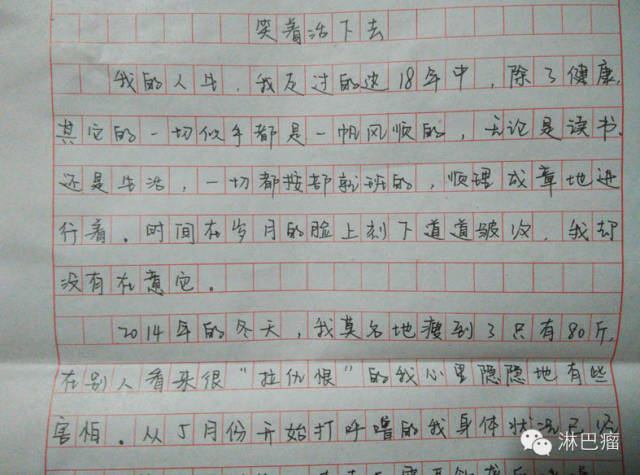 笑着活下去
我的人生，我反过的这18年中，除了健康，
其它的一切似乎都是一帆风顺的，无论是读书，
还是生活，一切都按部就班的，顺理成章地进
行着。时间在岁月的脸上刻下道道皱纹，我却
没有在意它。
2014年的冬天，我莫名地瘦到了只有80斤，
在别人看来很“拉仇恨”的我心里隐隐地有些
害怕。从5月份开始打呼噜的我身体状况已经
淋巴瘤